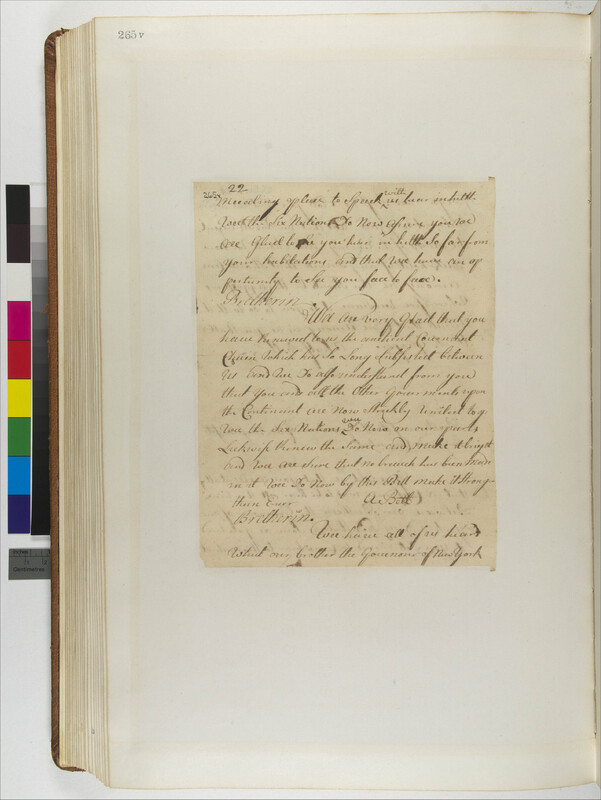 265v
265v 22
to Speak with us here in helth
Wee the Six Nations Do Now Asure you We
are Glad to See you here in helth So far from
your habitations and that we have an op
portunity to See you face to face.
Bretherin
Wee are very Glad that you
have Renewed to us the antient Covenant
Chain Which has So Long Subsisted between
us and We Do also understand from you
that you and all the Other Governments upon
the Continent are Now Strickly United to g
Wee the Six Nations Do Now on our parts
Lickwise Renew the Same and make it bright
and We are Sure that no breach has been made
in it We Do Now by this Belt make it Strong
than Ever
A Belt
Bretherin.
Wee have all of us heard
What our brother the Governour of New York
Inches
Centimetres